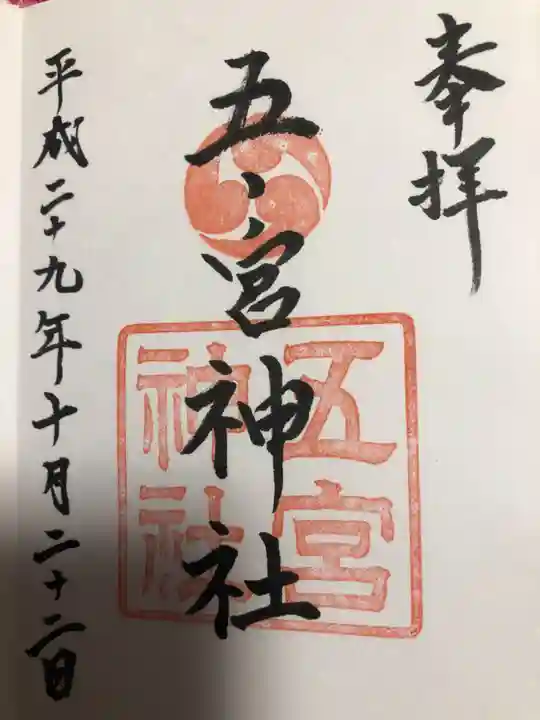 奉拝
五、宮神社
五宮
神社
平成二十九年十月二十二日